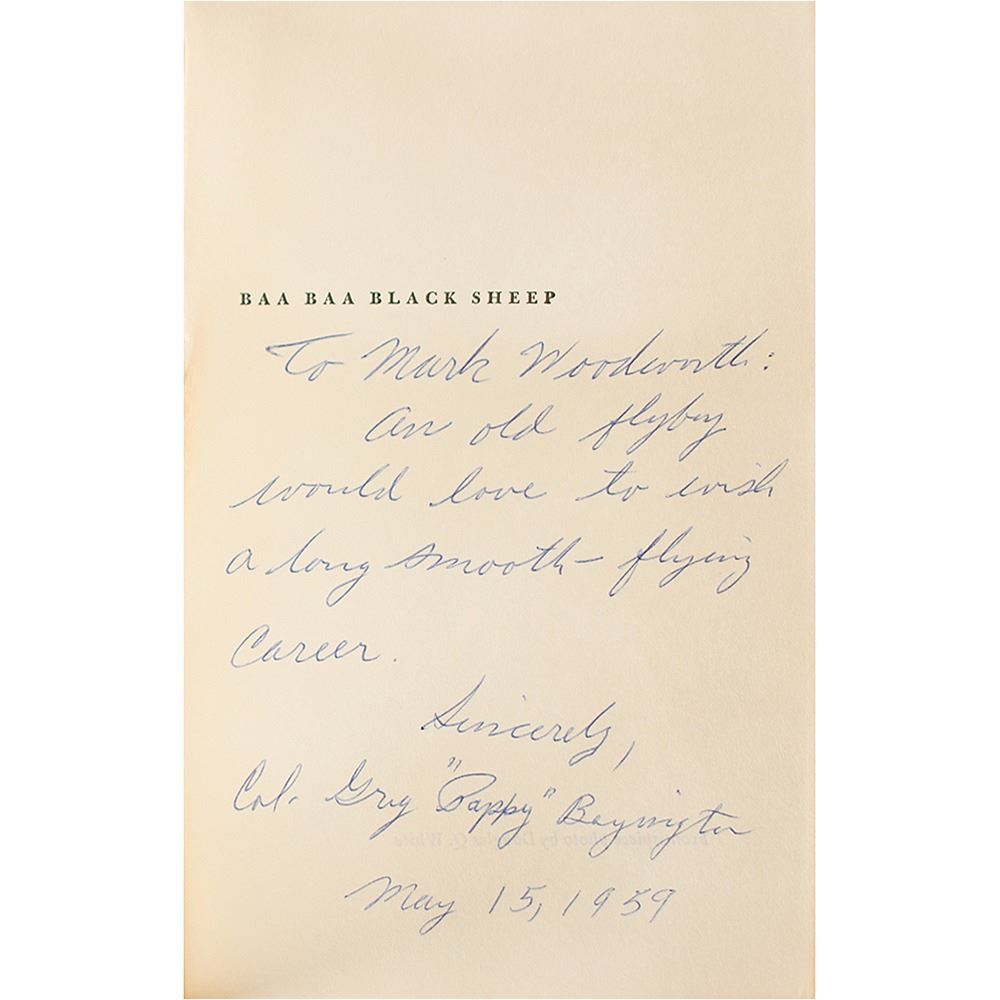 BAA BAA BLACK SHEEP
To Mark Woodworth:
An old flyboy
would love to wish
a long smooth- flying
Career.
Sincerely,
Col. Greg "Pappy" Boyington
May 15, 1959